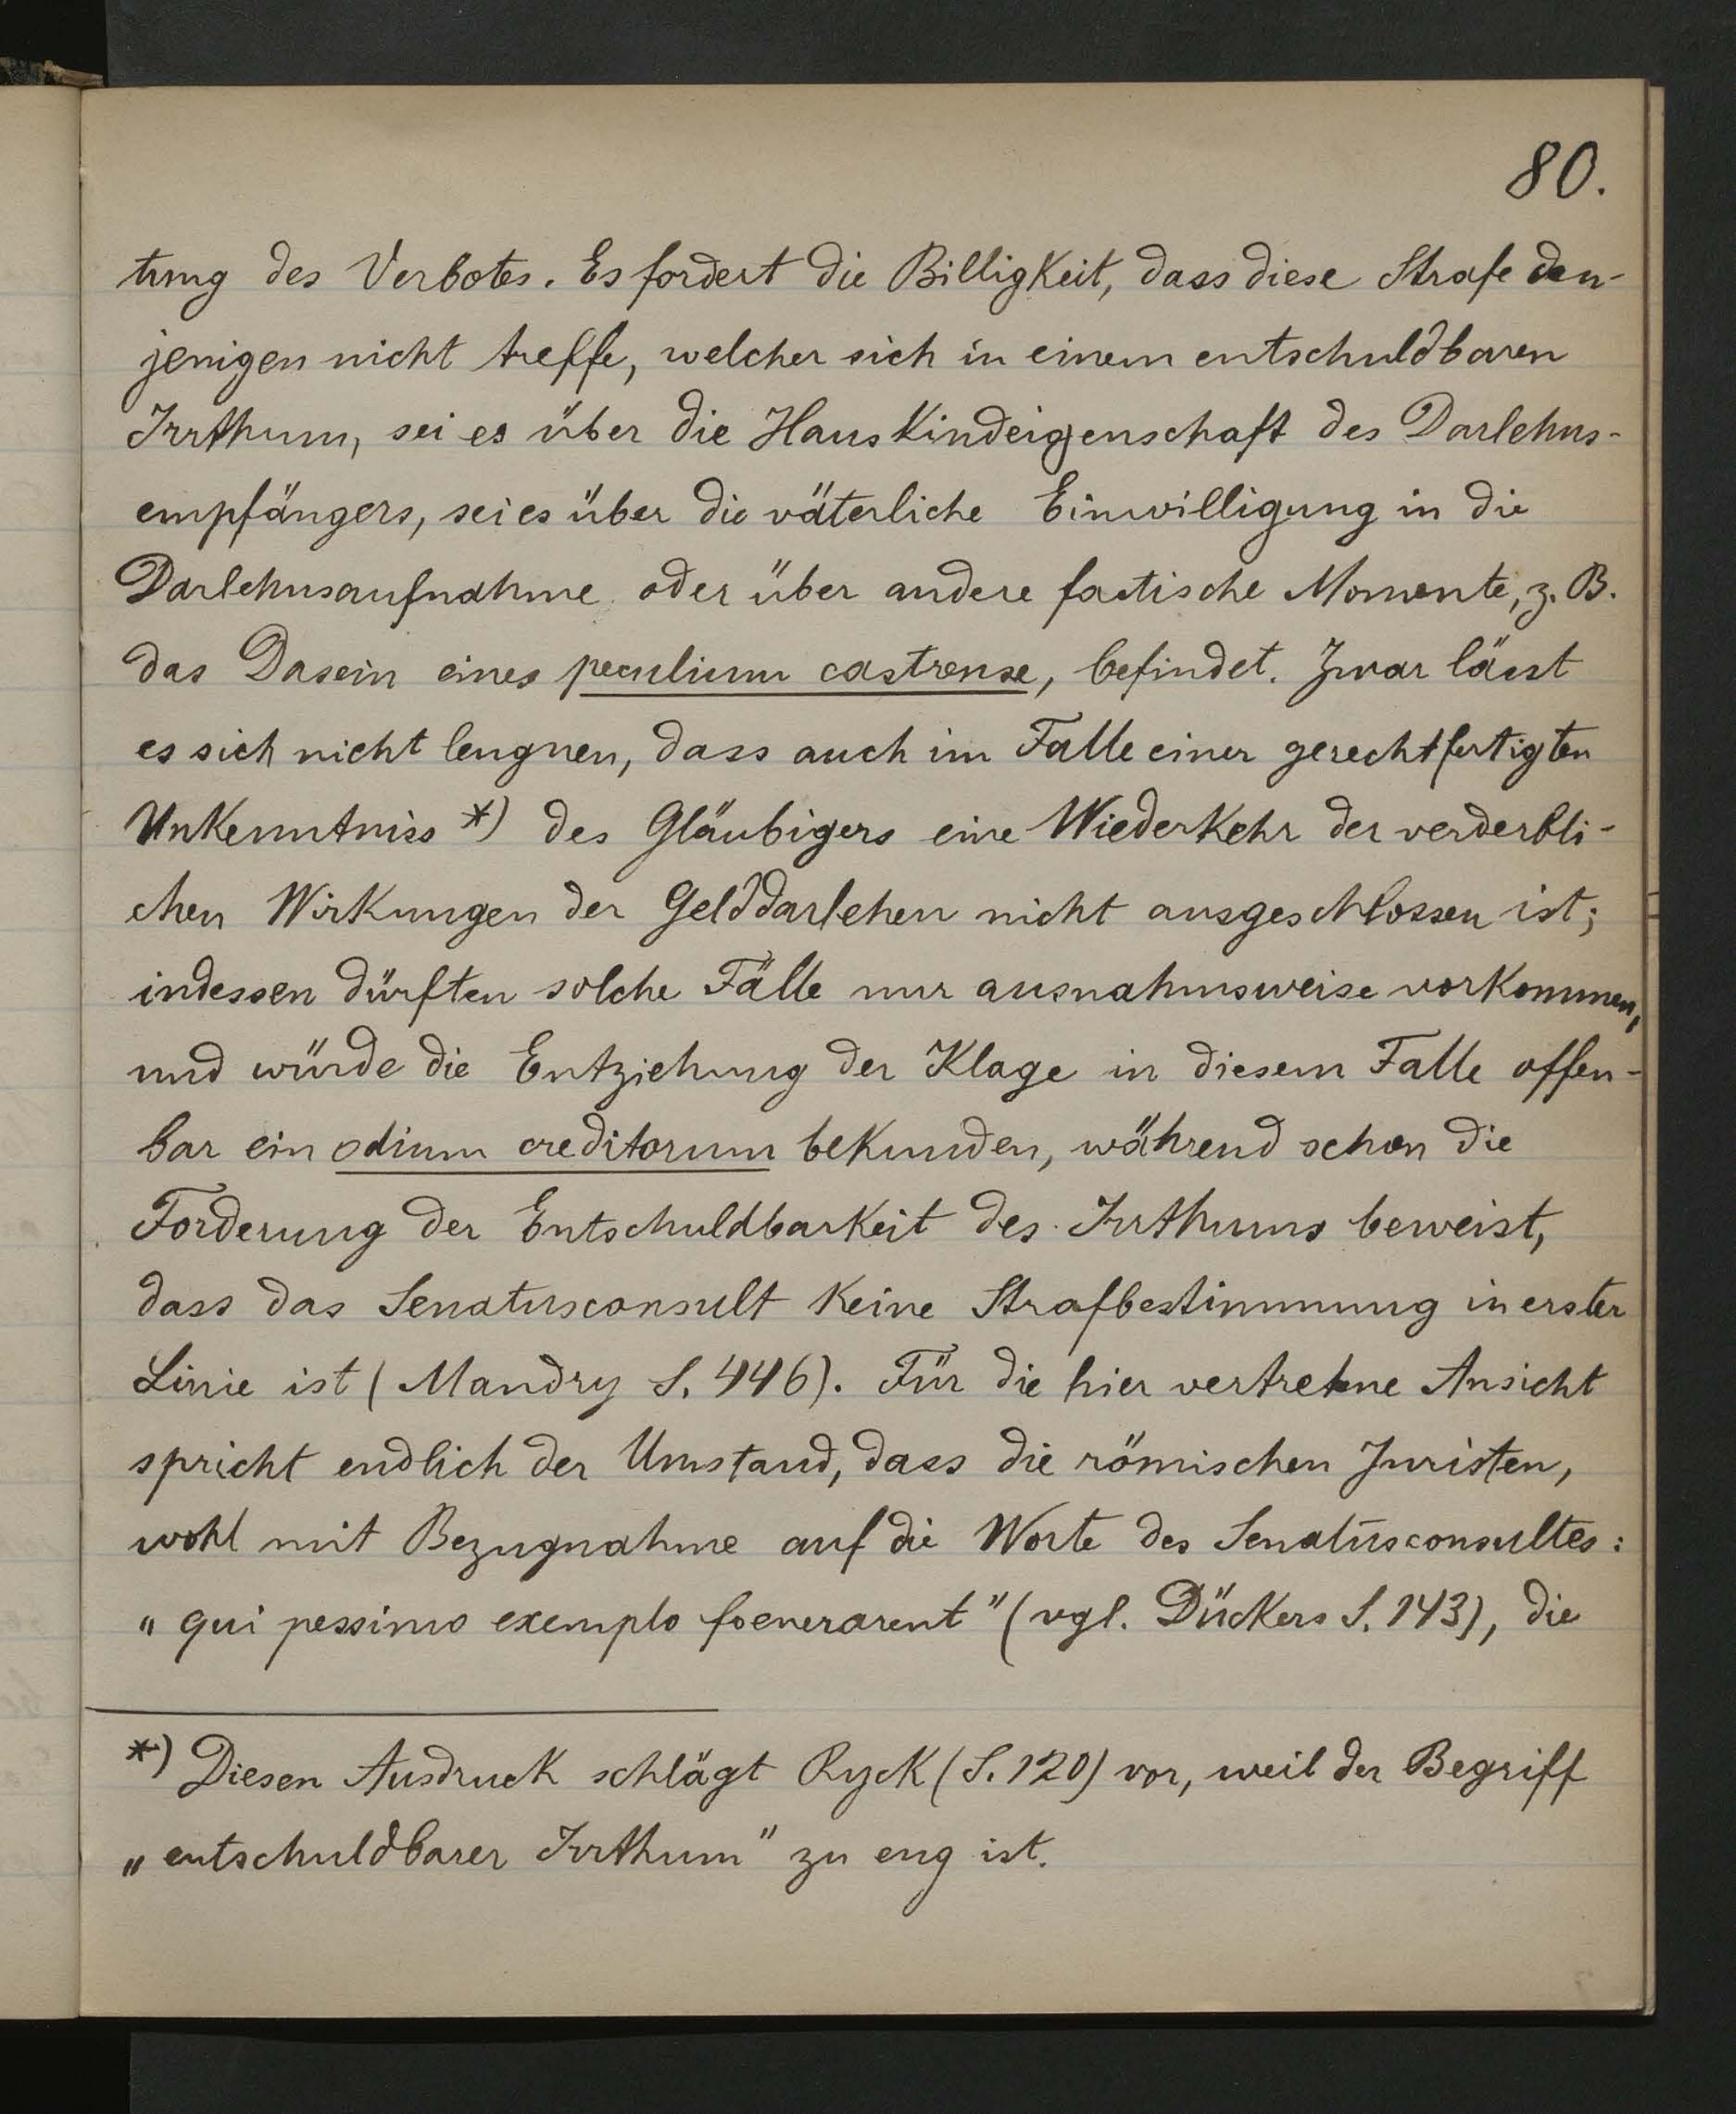 80.
tung des Verbotes. Es fordert die Billigkeit, dass diese Strafe den-
jenigen nicht treffe, welcher sich in einem entschuldbaren
Irrthum, sei es über die Hauskindeigenschaft des Darlehns-
empfängers, sei es über die väterliche Einwilligung in die
Darlehnsaufnahme oder über andere factische Momente, z. B.
das Dasein eines peculium castrense, befindet. Zwar lässt
es sich nicht leugnen, dass auch im Falle einer gerechtfertigten
Unkenntniss *) des Gläubigers eine Wiederkehr der verderbli-
chen Wirkungen der Gelddarlehen nicht ausgeschlossen ist;
indessen dürften solche Fälle nur ausnahmsweise vorkommen,
und würde die Entziehung der Klage in diesem Falle offen-
bar ein odium creditorum bekunden, während schon die
Forderung der Entschuldbarkeit des Irrthums beweist,
dass das Senatusconsult keine Strafbestimmung in erster
Linie ist (Mandry S. 446). Für die hier vertretene Ansicht
spricht endlich der Umstand, dass die römischen Juristen,
wohl mit Bezugnahme auf die Worte des Senatusconsultes:
„qui pessimo exemplo foenerarent" (vgl. Dückers S. 143), die
*) Diesen Ausdruck schlägt Ryck (S. 120) vor, weil der Begriff
„entschuldbarer Irrthum" zu eng ist.